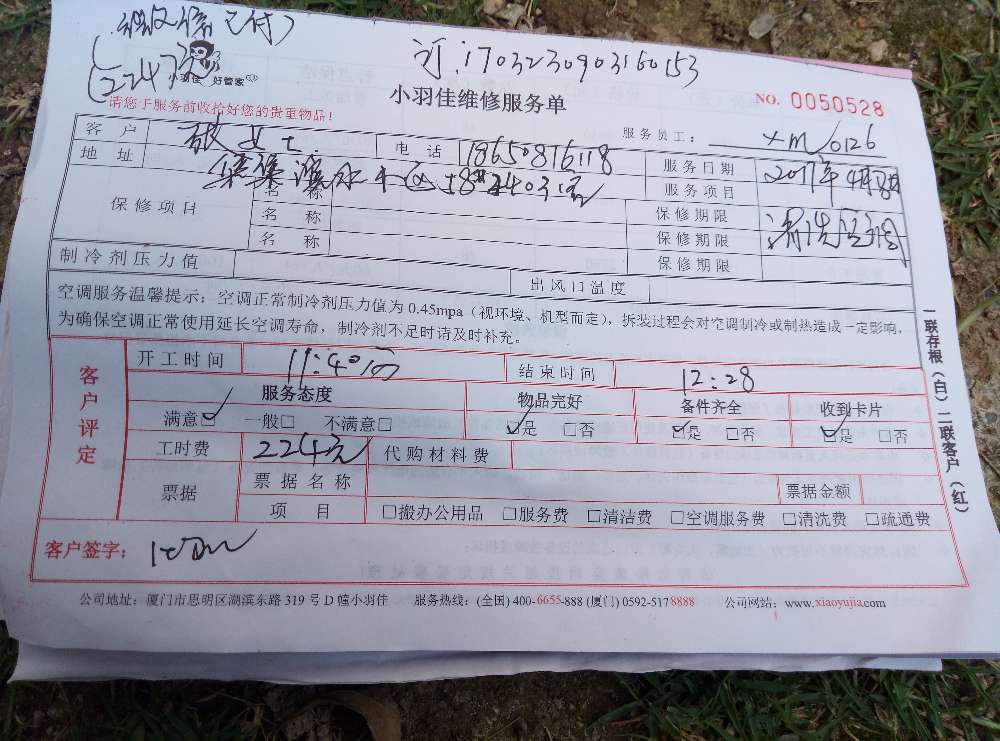 微信已付
(224元)
订:1703230903160153
小羽佳 好管家
请您于服务前收拾好您的贵重物品!
小羽佳维修服务单
NO. 0050528
服务员工: XM0126
客户 女士 电话 18650816118 服务日期 2017年4月8日
地址 服务项目 清洗空调
保修项目 名称 保修期限
名称 保修期限
名称 保修期限
制冷剂压力值 出风口温度
空调服务温馨提示:空调正常制冷剂压力值为 0.45mpa(视环境、机型而定),拆装过程会对空调制冷或制热造成一定影响,
为确保空调正常使用延长空调寿命,制冷剂不足时请及时补充。
客户评定
开工时间 11:40 结束时间 12:28
服务态度 物品完好 备件齐全 收到卡片
满意☑ 一般□ 不满意□ ☑是 □否 ☑是 □否 ☑是 □否
工时费 224元 代购材料费
票据 票据名称 票据金额
项目 □搬办公用品 □服务费 □清洁费 □空调服务费 □清洗费 □疏通费
客户签字:
一联存根(白)二联客户(红)
公司地址:厦门市思明区湖滨东路 319 号 D 幢小羽佳 服务热线:(全国) 400-6655-888 (厦门) 0592-5178888 公司网站:www.xiaoyujia.com